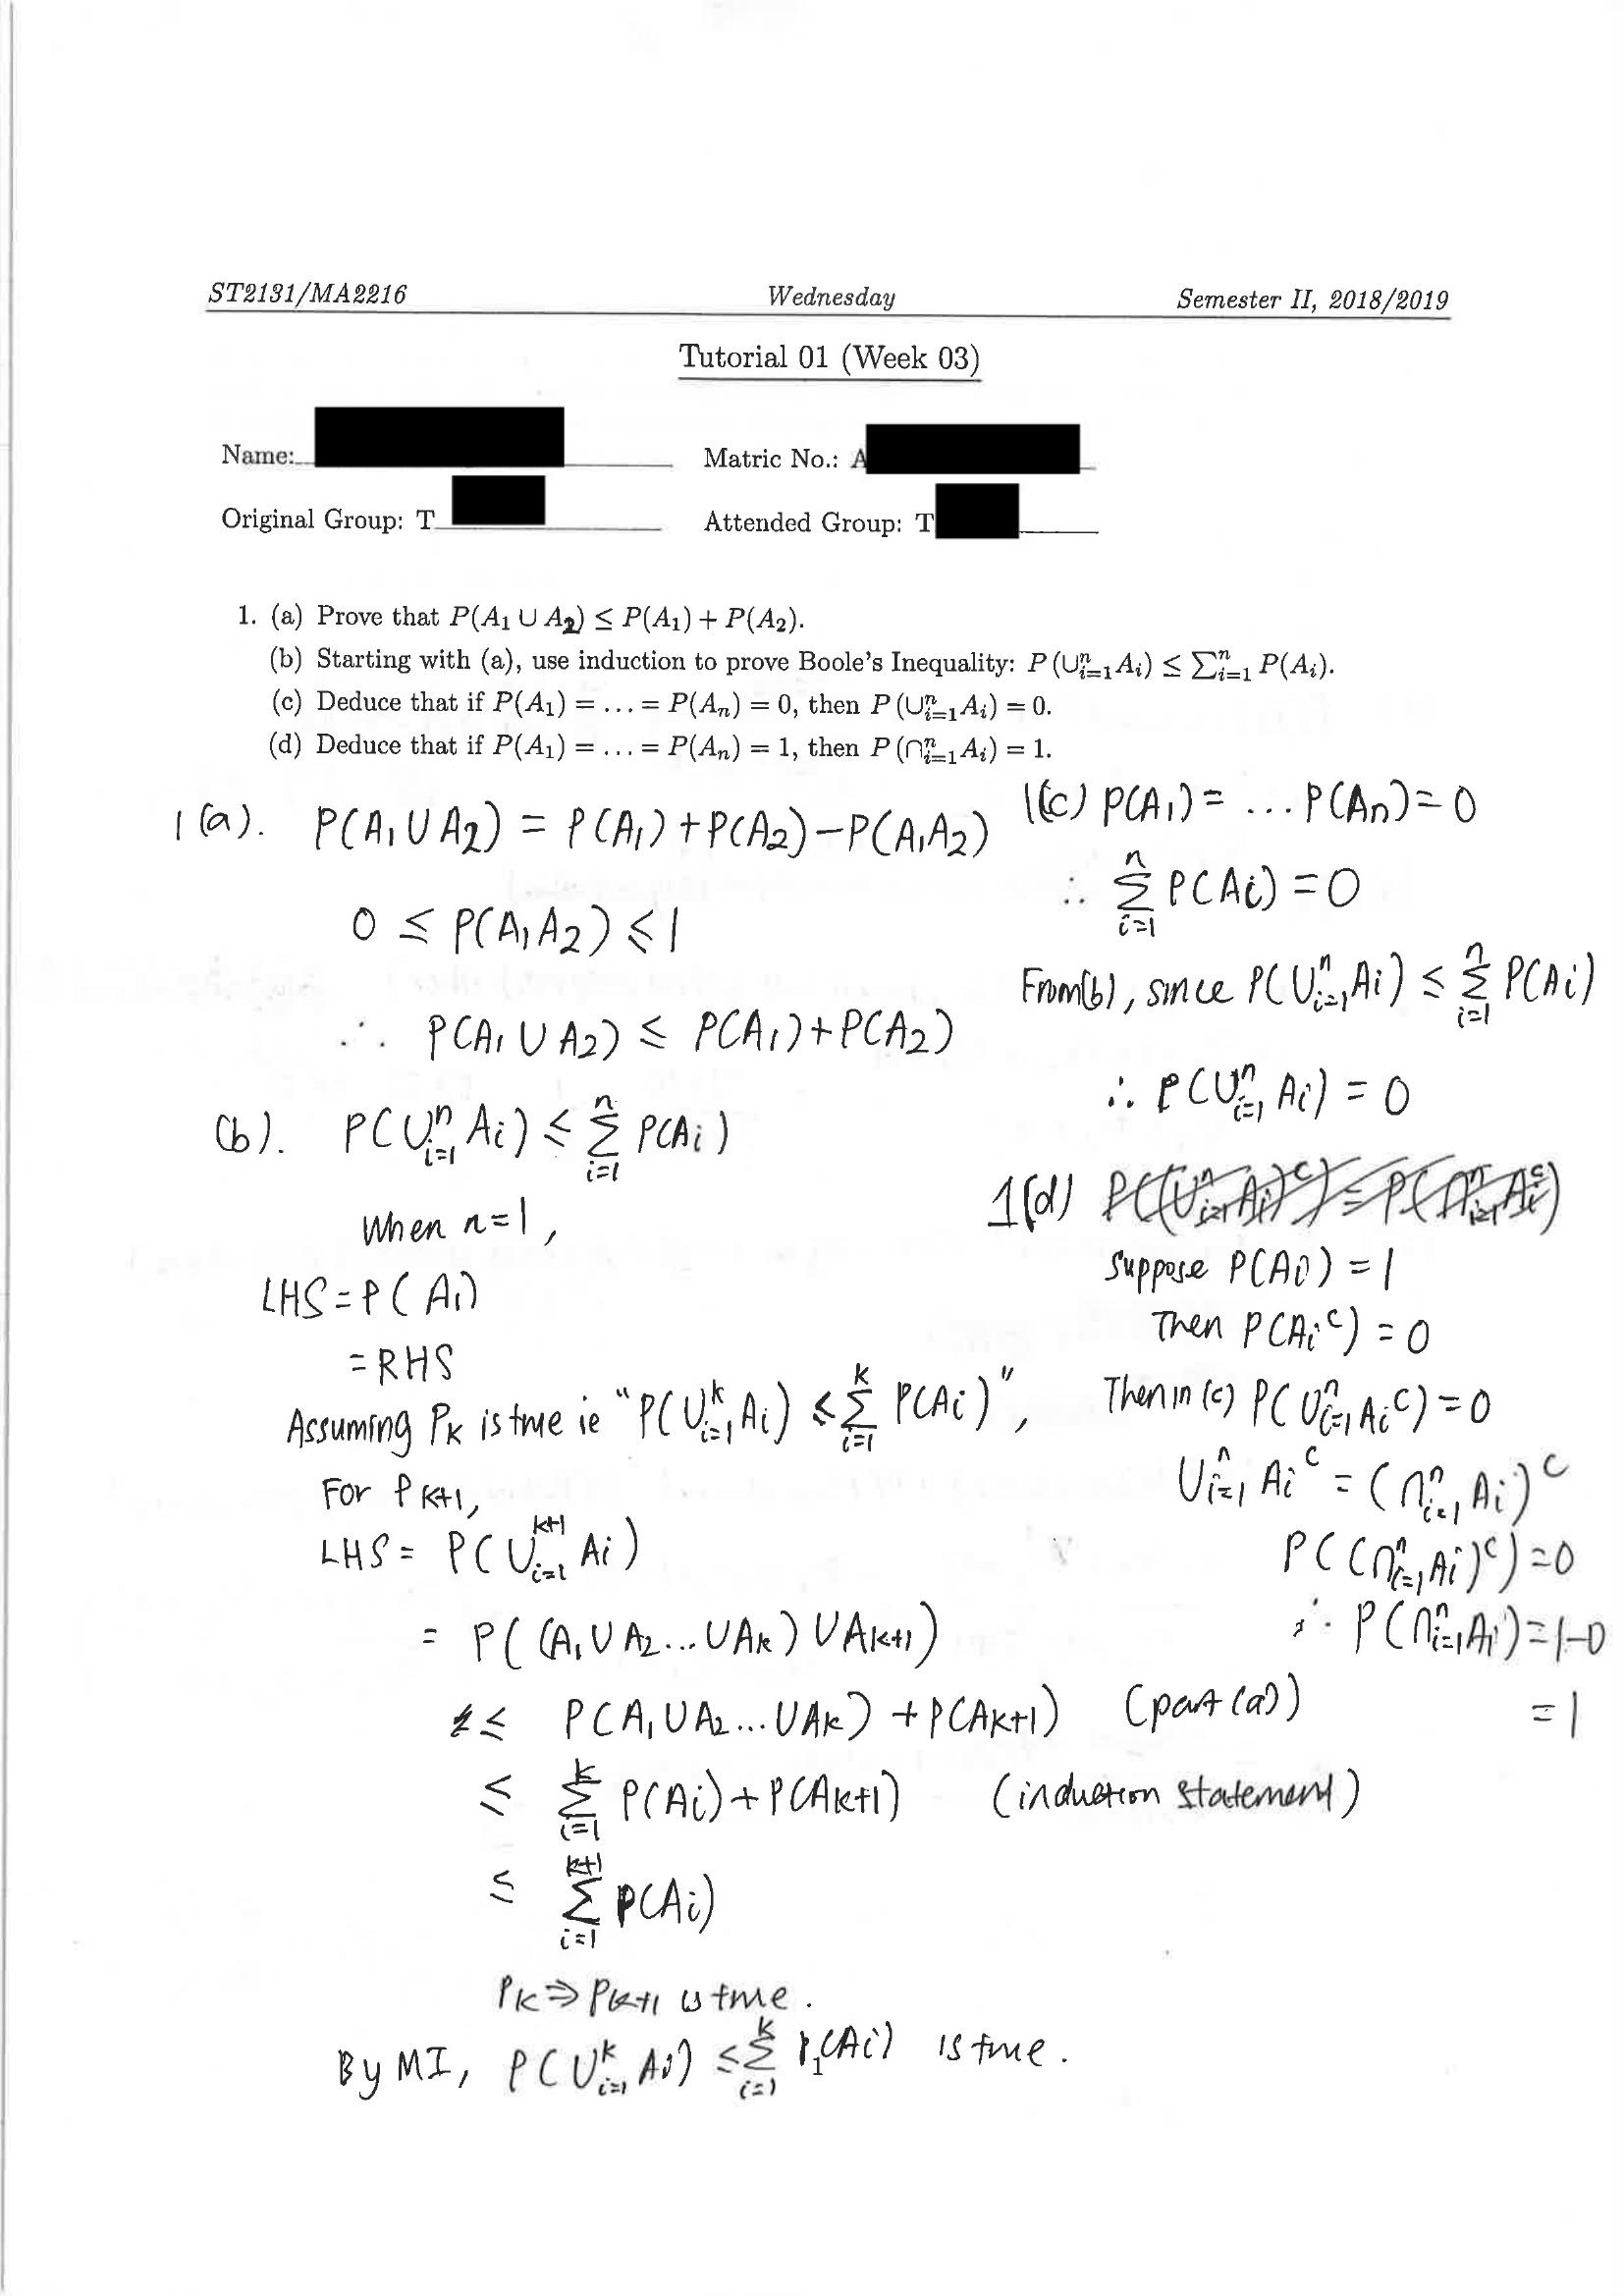 ST2131/MA2216 Wednesday Semester II, 2018/2019
Tutorial 01 (Week 03)
Name: Matric No.: A
Original Group: T Attended Group: T
1. (a) Prove that P(A₁ ∪ A₂) ≤ P(A₁) + P(A₂).
(b) Starting with (a), use induction to prove Boole's Inequality: P(∪ⁿᵢ₌₁Aᵢ) ≤ ∑ⁿᵢ₌₁ P(Aᵢ).
(c) Deduce that if P(A₁) = ... = P(Aₙ) = 0, then P(∪ⁿᵢ₌₁Aᵢ) = 0.
(d) Deduce that if P(A₁) = ... = P(Aₙ) = 1, then P(∩ⁿᵢ₌₁Aᵢ) = 1.
1(a). P(A₁ ∪ A₂) = P(A₁) + P(A₂) − P(A₁A₂)
0 ≤ P(A₁A₂) ≤ 1
∴ P(A₁ ∪ A₂) ≤ P(A₁) + P(A₂)
(b). P(∪ⁿᵢ₌₁ Aᵢ) ≤ ∑ⁿᵢ₌₁ P(Aᵢ)
When n=1,
LHS = P(A₁)
= RHS
Assuming Pₖ is true ie "P(∪ᵏᵢ₌₁ Aᵢ) ≤ ∑ᵏᵢ₌₁ P(Aᵢ)",
For Pₖ₊₁,
LHS = P(∪ᵏ⁺¹ᵢ₌₁ Aᵢ)
= P((A₁ ∪ A₂ ... ∪ Aₖ) ∪ Aₖ₊₁)
≤ P(A₁ ∪ A₂ ... ∪ Aₖ) + P(Aₖ₊₁) (part (a))
≤ ∑ᵏᵢ₌₁ P(Aᵢ) + P(Aₖ₊₁) (induction statement)
≤ ∑ᵏ⁺¹ᵢ₌₁ P(Aᵢ)
Pₖ ⇒ Pₖ₊₁ is true.
By MI, P(∪ᵏᵢ₌₁ Aᵢ) ≤ ∑ᵏᵢ₌₁ P(Aᵢ) is true.
1(c) P(A₁) = ... P(Aₙ) = 0
∴ ∑ⁿᵢ₌₁ P(Aᵢ) = 0
From (b), since P(∪ⁿᵢ₌₁ Aᵢ) ≤ ∑ⁿᵢ₌₁ P(Aᵢ)
∴ P(∪ⁿᵢ₌₁ Aᵢ) = 0
1(d) P((∪ⁿᵢ₌₁ Aᵢ)ᶜ) = P(∩ⁿᵢ₌₁ Aᵢᶜ)
Suppose P(Aᵢ) = 1
Then P(Aᵢᶜ) = 0
Then in (c) P(∪ⁿᵢ₌₁ Aᵢᶜ) = 0
∪ⁿᵢ₌₁ Aᵢᶜ = (∩ⁿᵢ₌₁ Aᵢ)ᶜ
P((∩ⁿᵢ₌₁ Aᵢ)ᶜ) = 0
∴ P(∩ⁿᵢ₌₁ Aᵢ) = 1−0
= 1